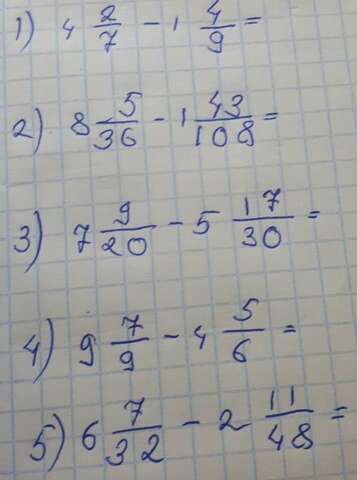 1) 4 2/7 - 1 4/9 =
2) 8 5/36 - 1 43/108 =
3) 7 9/20 - 5 17/30 =
4) 9 7/9 - 4 5/6 =
5) 6 7/32 - 2 11/48 =